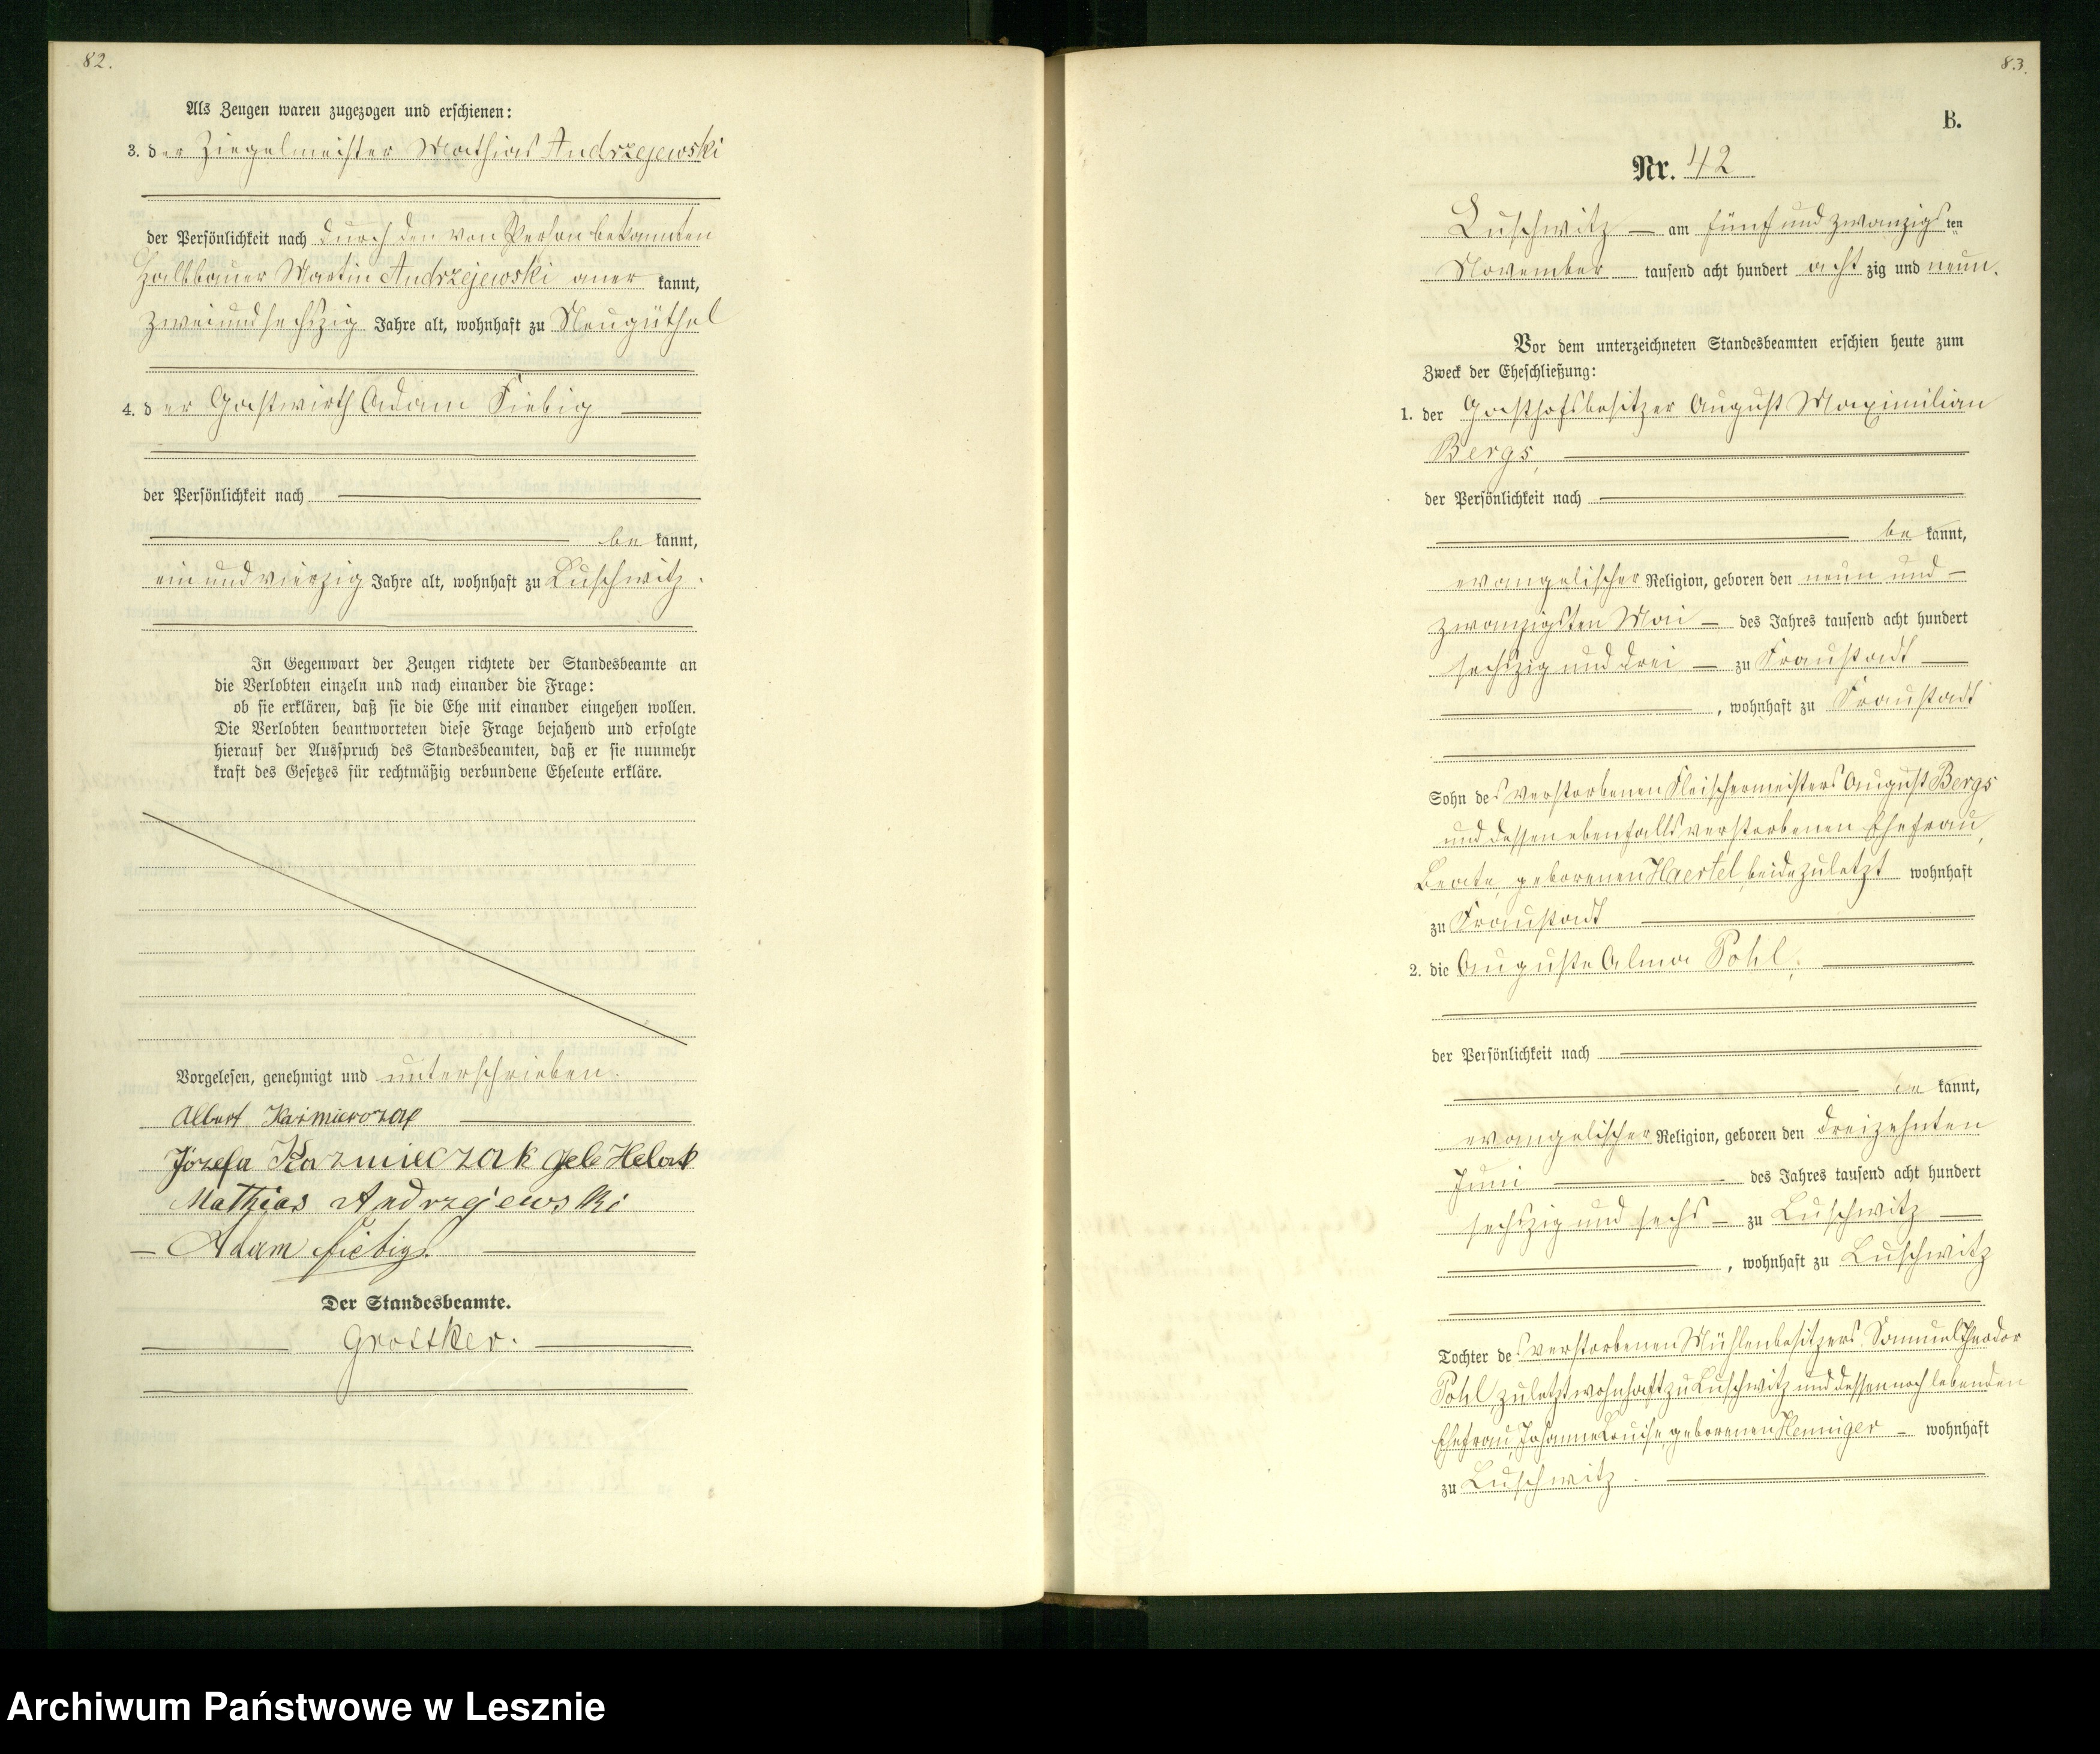 82.
Als Zeugen waren zugezogen und erschienen:
3. der Ziegelmeister Mathias Andrzejewski
der Persönlichkeit nach durch den von Person bekannten
Halbbauer Martin Andrzejewski aner kannt,
zweiundsechszig Jahre alt, wohnhaft zu Neugüthel
4. der Gastwirth Adam Fiebig
der Persönlichkeit nach
be kannt,
ein und vierzig Jahre alt, wohnhaft zu Luschwitz.
In Gegenwart der Zeugen richtete der Standesbeamte an
die Verlobten einzeln und nach einander die Frage:
ob sie erklären, daß sie die Ehe mit einander eingehen wollen.
Die Verlobten beantworteten diese Frage bejahend und erfolgte
hierauf der Ausspruch des Standesbeamten, daß er sie nunmehr
kraft des Gesetzes für rechtmäßig verbundene Eheleute erkläre.
Vorgelesen, genehmigt und unterschrieben.
Albert
Józefa Kazmieczak geb Helak
Mathias Andrzejewski
Adam Fiebig.
Der Standesbeamte.
83.
B.
Nr. 42
Luschwitz am fünf und zwanzigs ten
November tausend acht hundert acht zig und neun.
Vor dem unterzeichneten Standesbeamten erschien heute zum
Zweck der Eheschließung:
1. der Gasthofsbesitzer August Maximilian
Bergs,
der Persönlichkeit nach
be kannt,
evangelischer Religion, geboren den neun und
zwanzigsten Mai des Jahres tausend acht hundert
sechszig und drei zu Fraustadt
, wohnhaft zu Fraustadt
Sohn des verstorbenen Fleischermeisters August Bergs
und dessen ebenfalls verstorbenen Ehefrau,
Beate, geborenen Haertel, beide zuletzt wohnhaft
zu Fraustadt
2. die Auguste Alma Pohl,
der Persönlichkeit nach
be kannt,
evangelischer Religion, geboren den dreizehnten
Juni des Jahres tausend acht hundert
sechszig und sechs zu Luschwitz
, wohnhaft zu Luschwitz
Tochter des verstorbenen Mühlenbesitzers Samuel Theodor
Pohl, zuletzt wohnhaft zu Luschwitz und dessen noch lebenden
Ehefrau, Johanne Louise, geborenen Henniger wohnhaft
zu Luschwitz.
Archiwum Państwowe w Lesznie